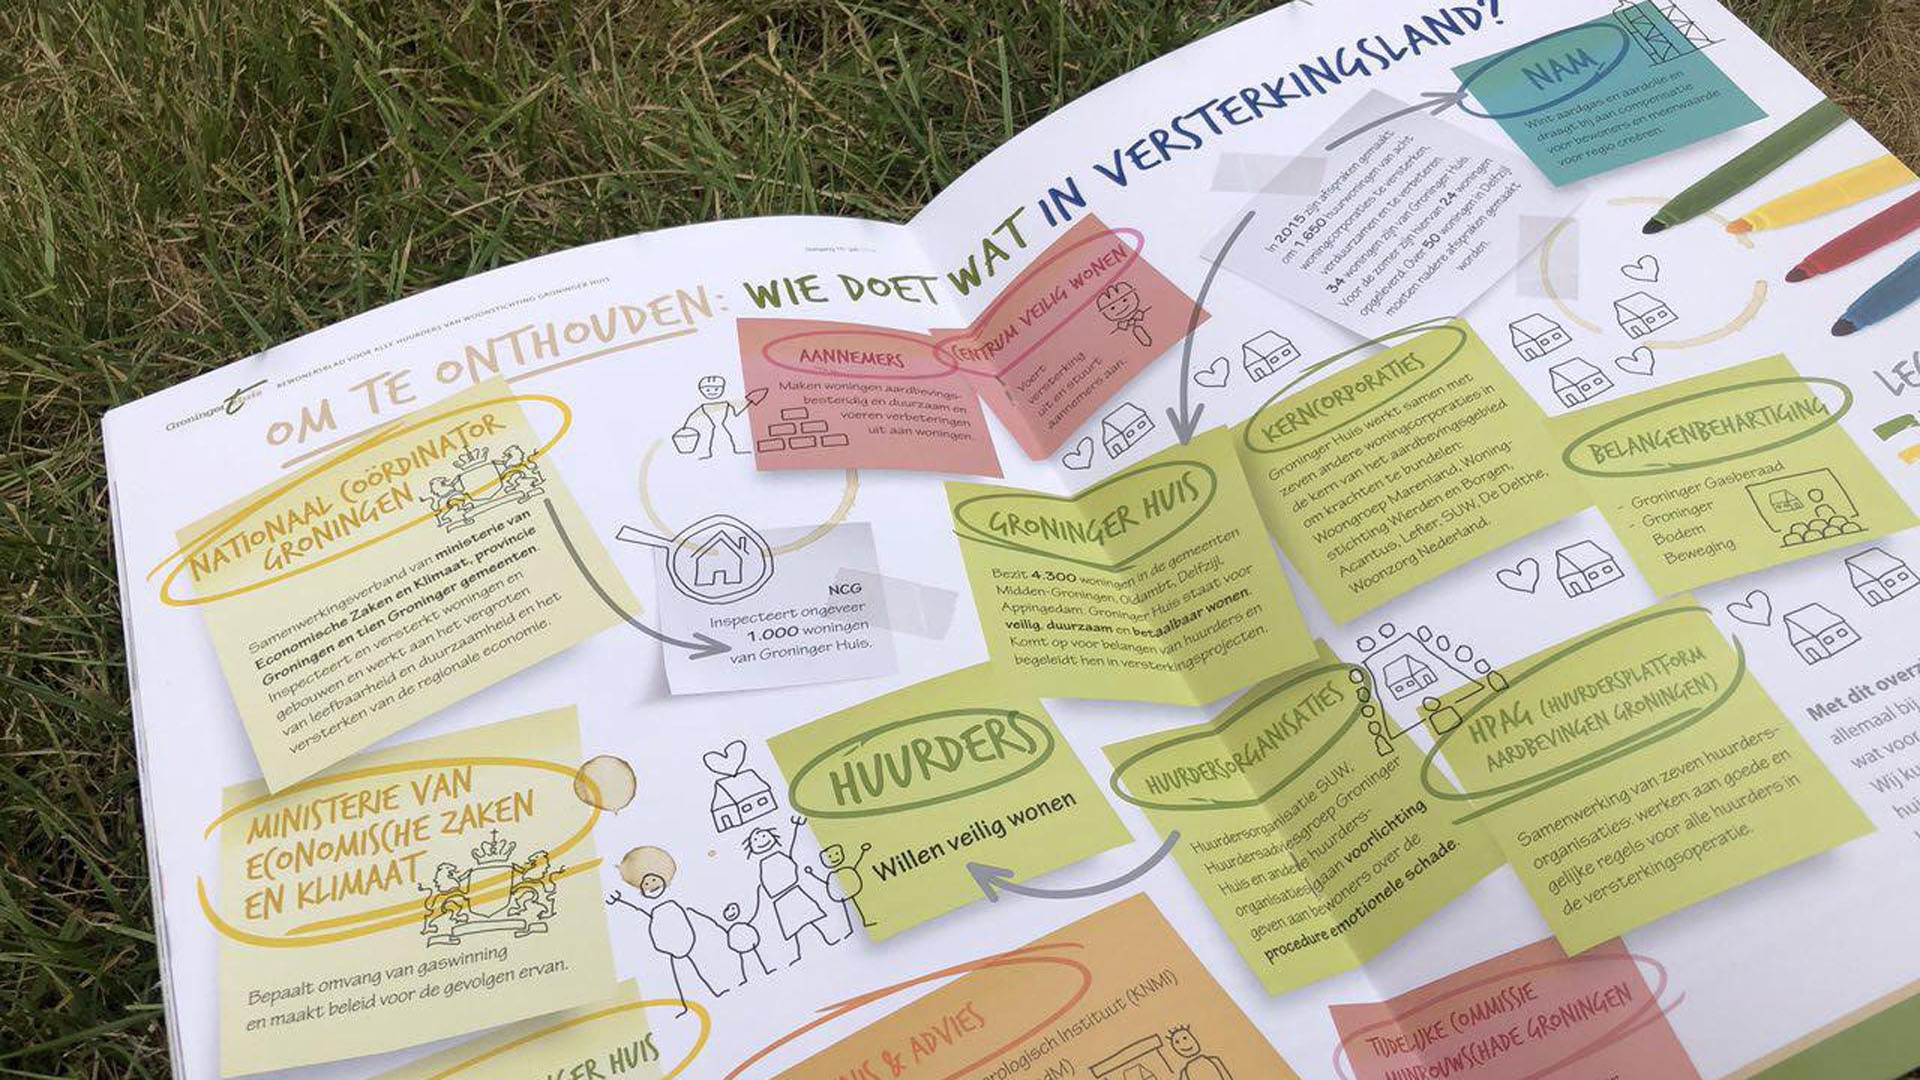 Groninger Huis
BEWONERSBLAD VOOR ALLE HUURDERS VAN WOONSTICHTING GRONINGER HUIS
OM TE ONTHOUDEN: WIE DOET WAT IN VERSTERKINGSLAND?
NATIONAAL COÖRDINATOR
GRONINGEN
Samenwerkingsverband van ministerie van
Economische Zaken en Klimaat, provincie
Groningen en tien Groninger gemeenten.
Inspecteert en versterkt woningen en
gebouwen en werkt aan het vergroten
van leefbaarheid en duurzaamheid en het
versterken van de regionale economie.
NCG
Inspecteert ongeveer
1.000 woningen
van Groninger Huis.
AANNEMERS
Maken woningen aardbevings-
bestendig en duurzaam en
voeren verbeteringen
uit aan woningen.
CENTRUM VEILIG WONEN
Voert
versterking
uit en stuurt
aannemers aan.
In 2015 zijn afspraken gemaakt
om 1.650 huurwoningen van acht
woningcorporaties te versterken,
verduurzamen en te verbeteren.
34 woningen zijn van Groninger Huis.
Voor de zomer zijn hiervan 24 woningen
opgeleverd. Over 50 woningen in Delfzijl
moeten nadere afspraken gemaakt
worden.
NAM
Wint aardgas en aardolie en
draagt bij aan compensatie
voor bewoners en meerwaarde
voor regio creëren.
GRONINGER HUIS
Bezit 4.300 woningen in de gemeenten
Midden-Groningen, Oldambt, Delfzijl,
Appingedam. Groninger Huis staat voor
veilig, duurzaam en betaalbaar wonen.
Komt op voor belangen van huurders en
begeleidt hen in versterkingsprojecten.
KERNCORPORATIES
Groninger Huis werkt samen met
zeven andere woningcorporaties in
de kern van het aardbevingsgebied
om krachten te bundelen:
Woongroep Marenland, Woning-
stichting Wierden en Borgen,
Acantus, Lefier, SUW, De Delthe,
Woonzorg Nederland.
BELANGENBEHARTIGING
- Groninger Gasberaad
- Groninger
Bodem
Beweging
LE
MINISTERIE VAN
ECONOMISCHE ZAKEN
EN KLIMAAT
Bepaalt omvang van gaswinning
en maakt beleid voor de gevolgen ervan.
HUURDERS
Willen veilig wonen
HUURDERSORGANISATIES
Huurdersorganisatie SUW,
Huurdersadviesgroep Groninger
Huis en andere huurders-
organisaties gaan voorlichting
geven aan bewoners over de
procedure emotionele schade.
HPAG (HUURDERSPLATFORM
AARDBEVINGEN GRONINGEN)
Samenwerking van zeven huurders-
organisaties: werken aan goede en
gelijke regels voor alle huurders in
de versterkingsoperatie.
Met dit overz
allemaal bij
wat voor
Wij ku
hui
GER HUIS
NIS & ADVIES
orologisch Instituut (KNMI)
dM)
TIJDELIJKE COMMISSIE
MIJNBOUWSCHADE GRONINGEN